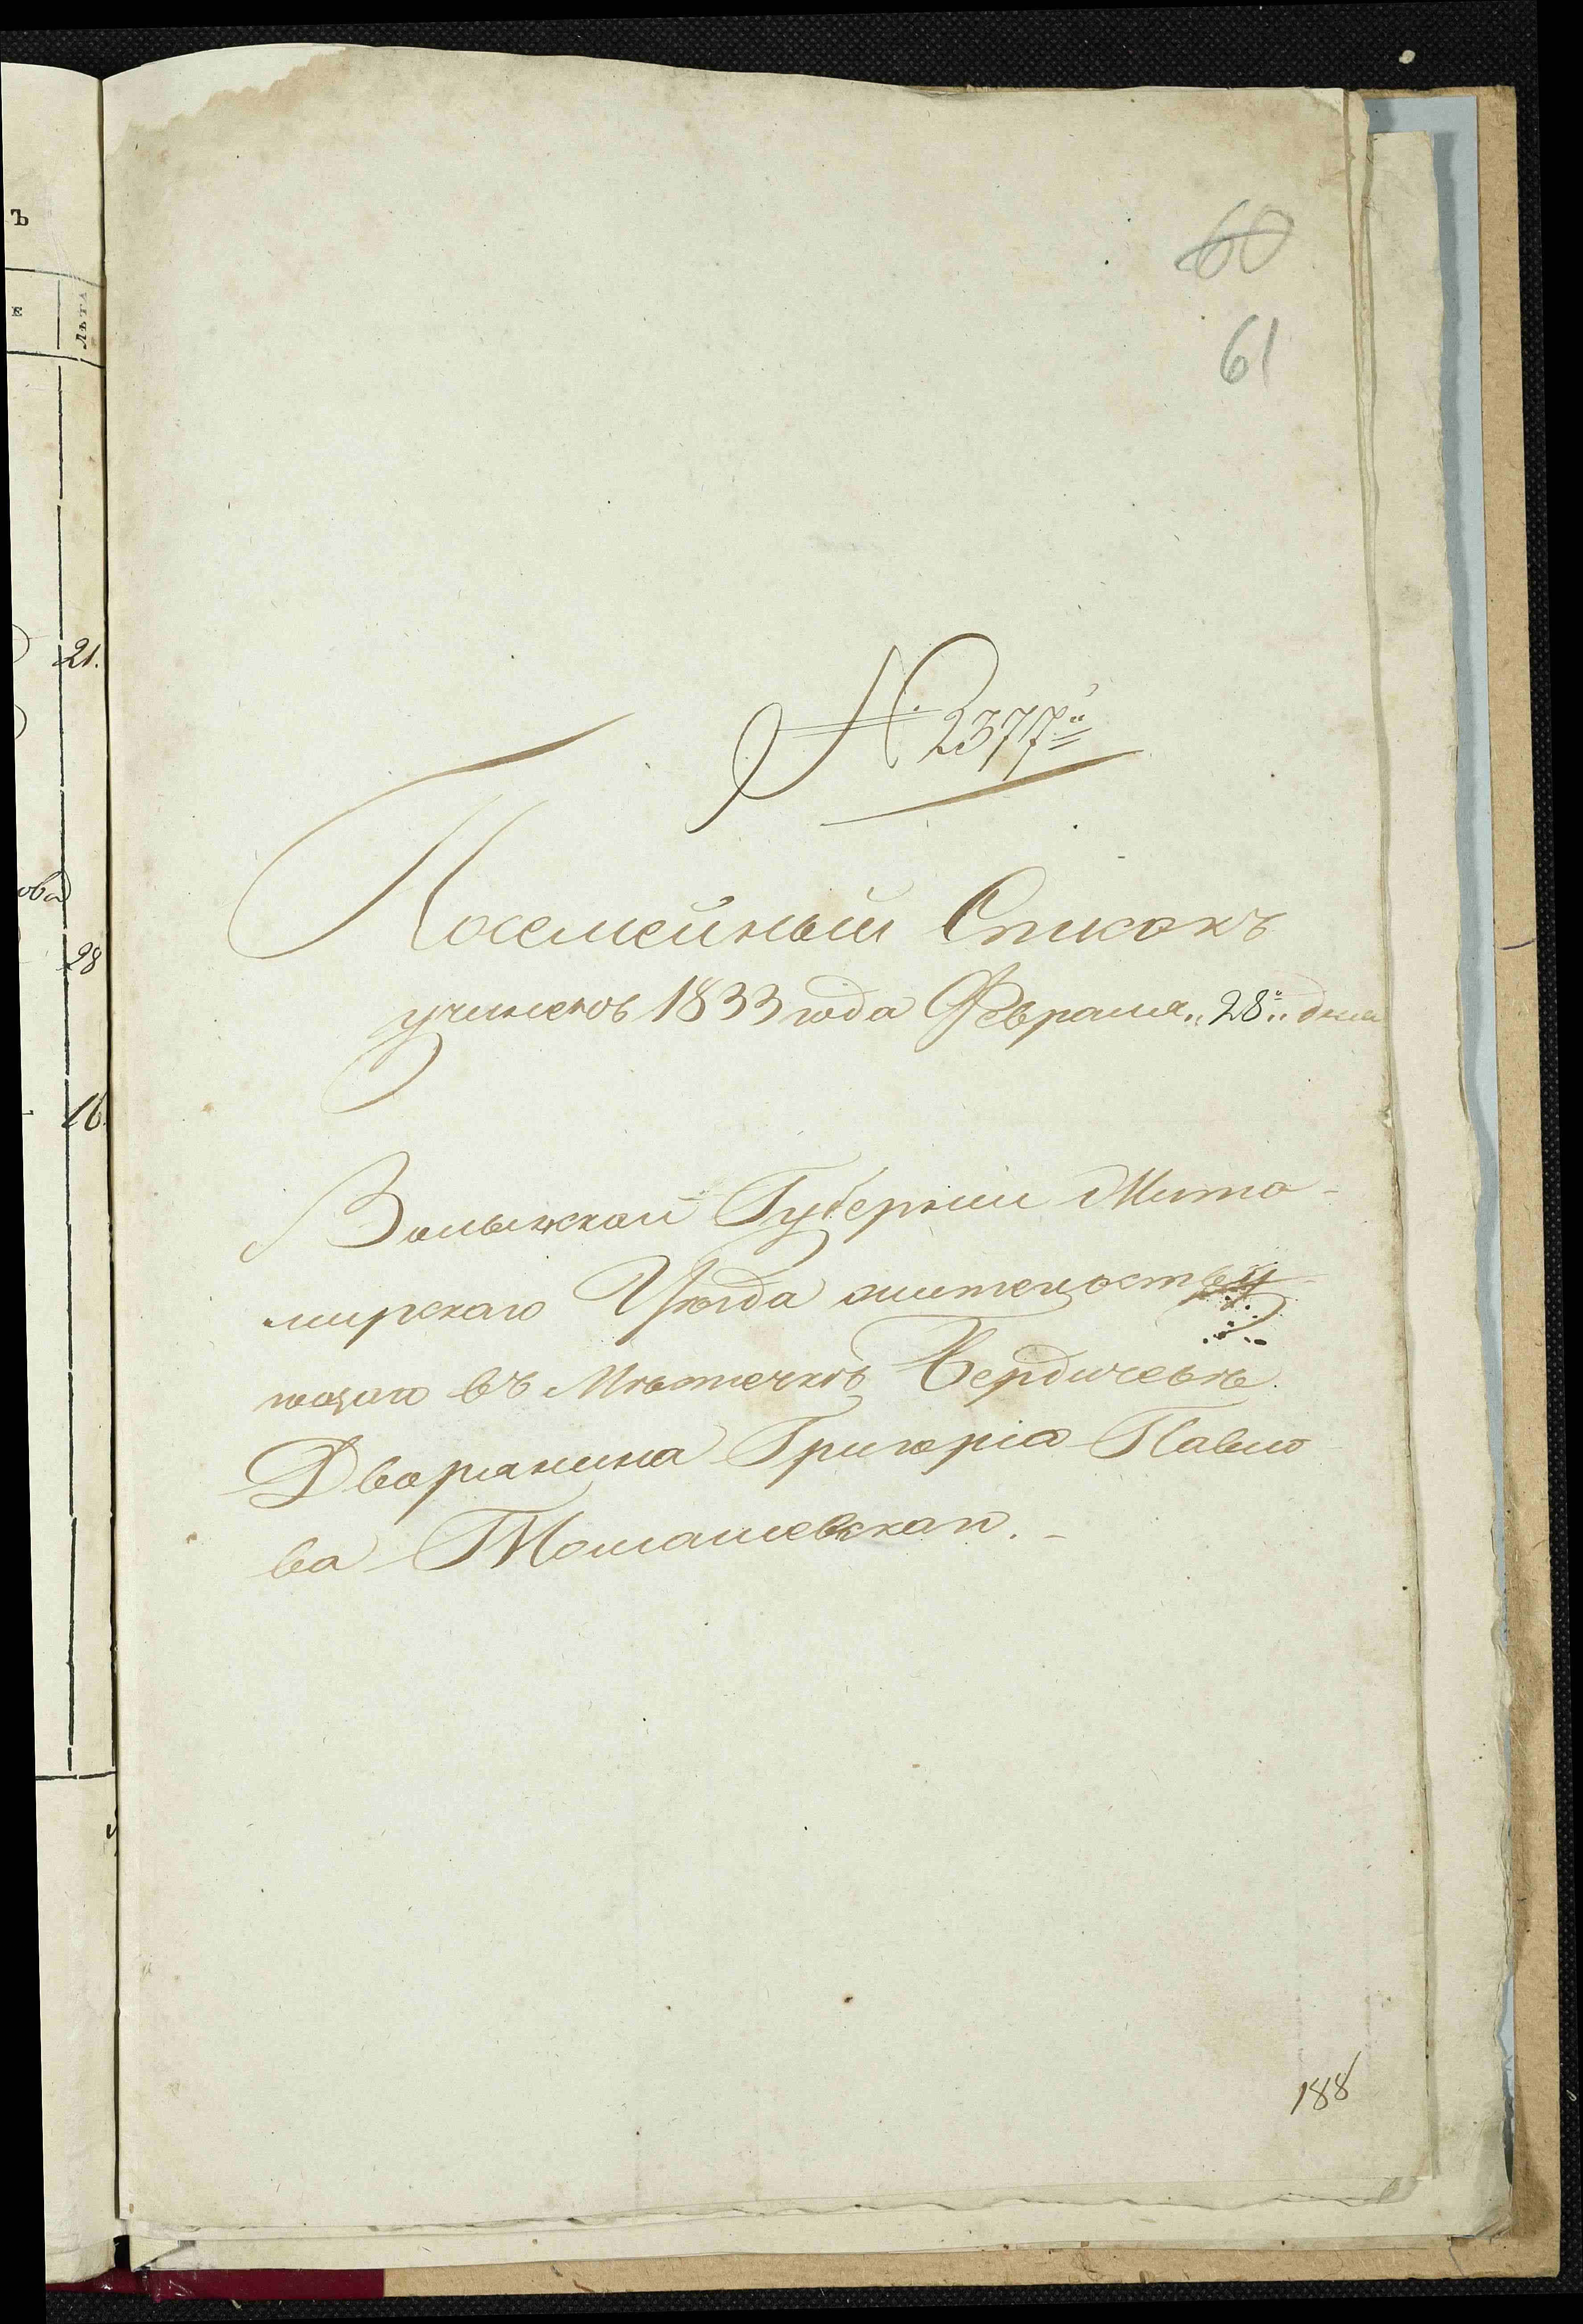 Ъ
Е
ЛѢТА
60
61
21.
ова
28
16.
№ 2377й
Посемейный Списокъ
учиненъ 1833 года Февраля „28„ дня
Волынской Губерніи Жито-
мирскаго Уѣзда жительству-
ющаго въ Мѣстечкѣ Бердичевѣ
Дворянина Григорія Павло
ва Томашевскаго.-
188